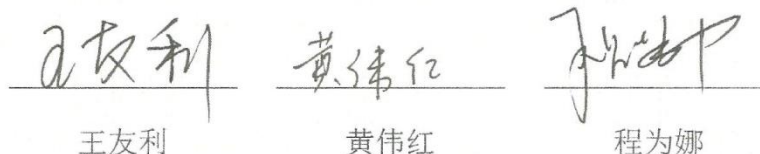 王友利 黄伟红
王友利 黄伟红 程为娜